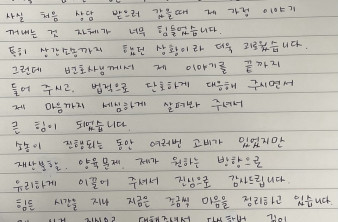 사실 처음 상담 받으러 갔을때 제 가정 이야기
꺼내는 것 자체가 너무 힘들었습니다.
특히 상간소송까지 했던 상황이라 더욱 괴로웠습니다.
그런데 변호사님께서 제 이야기를 끝까지
들어 주시고, 법적으로 단호하게 대응해 주시면서
제 마음까지 세심하게 살펴봐 주셔서
큰 힘이 되었습니다.
소송이 진행되는 동안 여러번 고비가 있었지만
재산분할, 양육문제, 제가 원하는 방향으로
유리하게 이끌어 주셔서 진심으로 감사드립니다.
힘든 시간을 지나 지금은 조금씩 마음을 정리하고 있습니다.